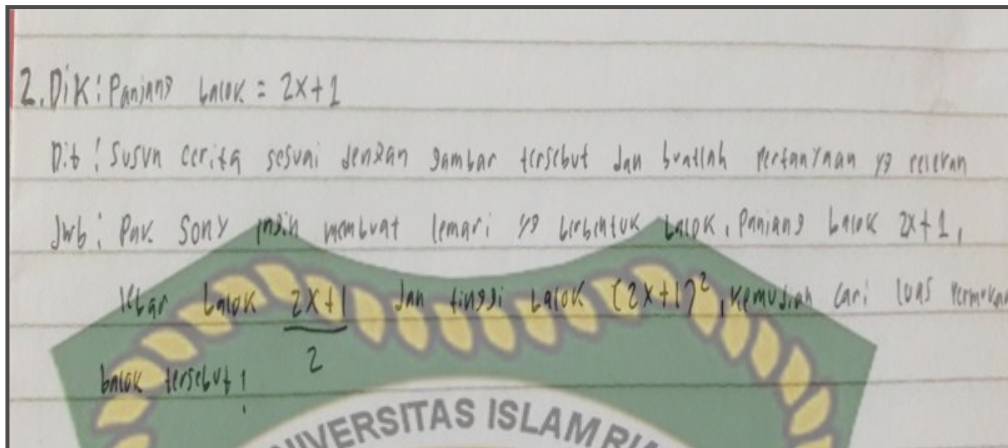 2. Dik : Panjang balok = 2x+1
Dit : Susun cerita sesuai dengan gambar tersebut dan buatlah pertanyaan yg relevan
Jwb : Pak Sony ingin membuat lemari yg berbentuk balok, Panjang balok 2x+1,
lebar balok 2x+1/2 dan tinggi balok (2x+1)², kemudian cari luas permukaan
balok tersebut !
UNIVERSITAS ISLAM RI